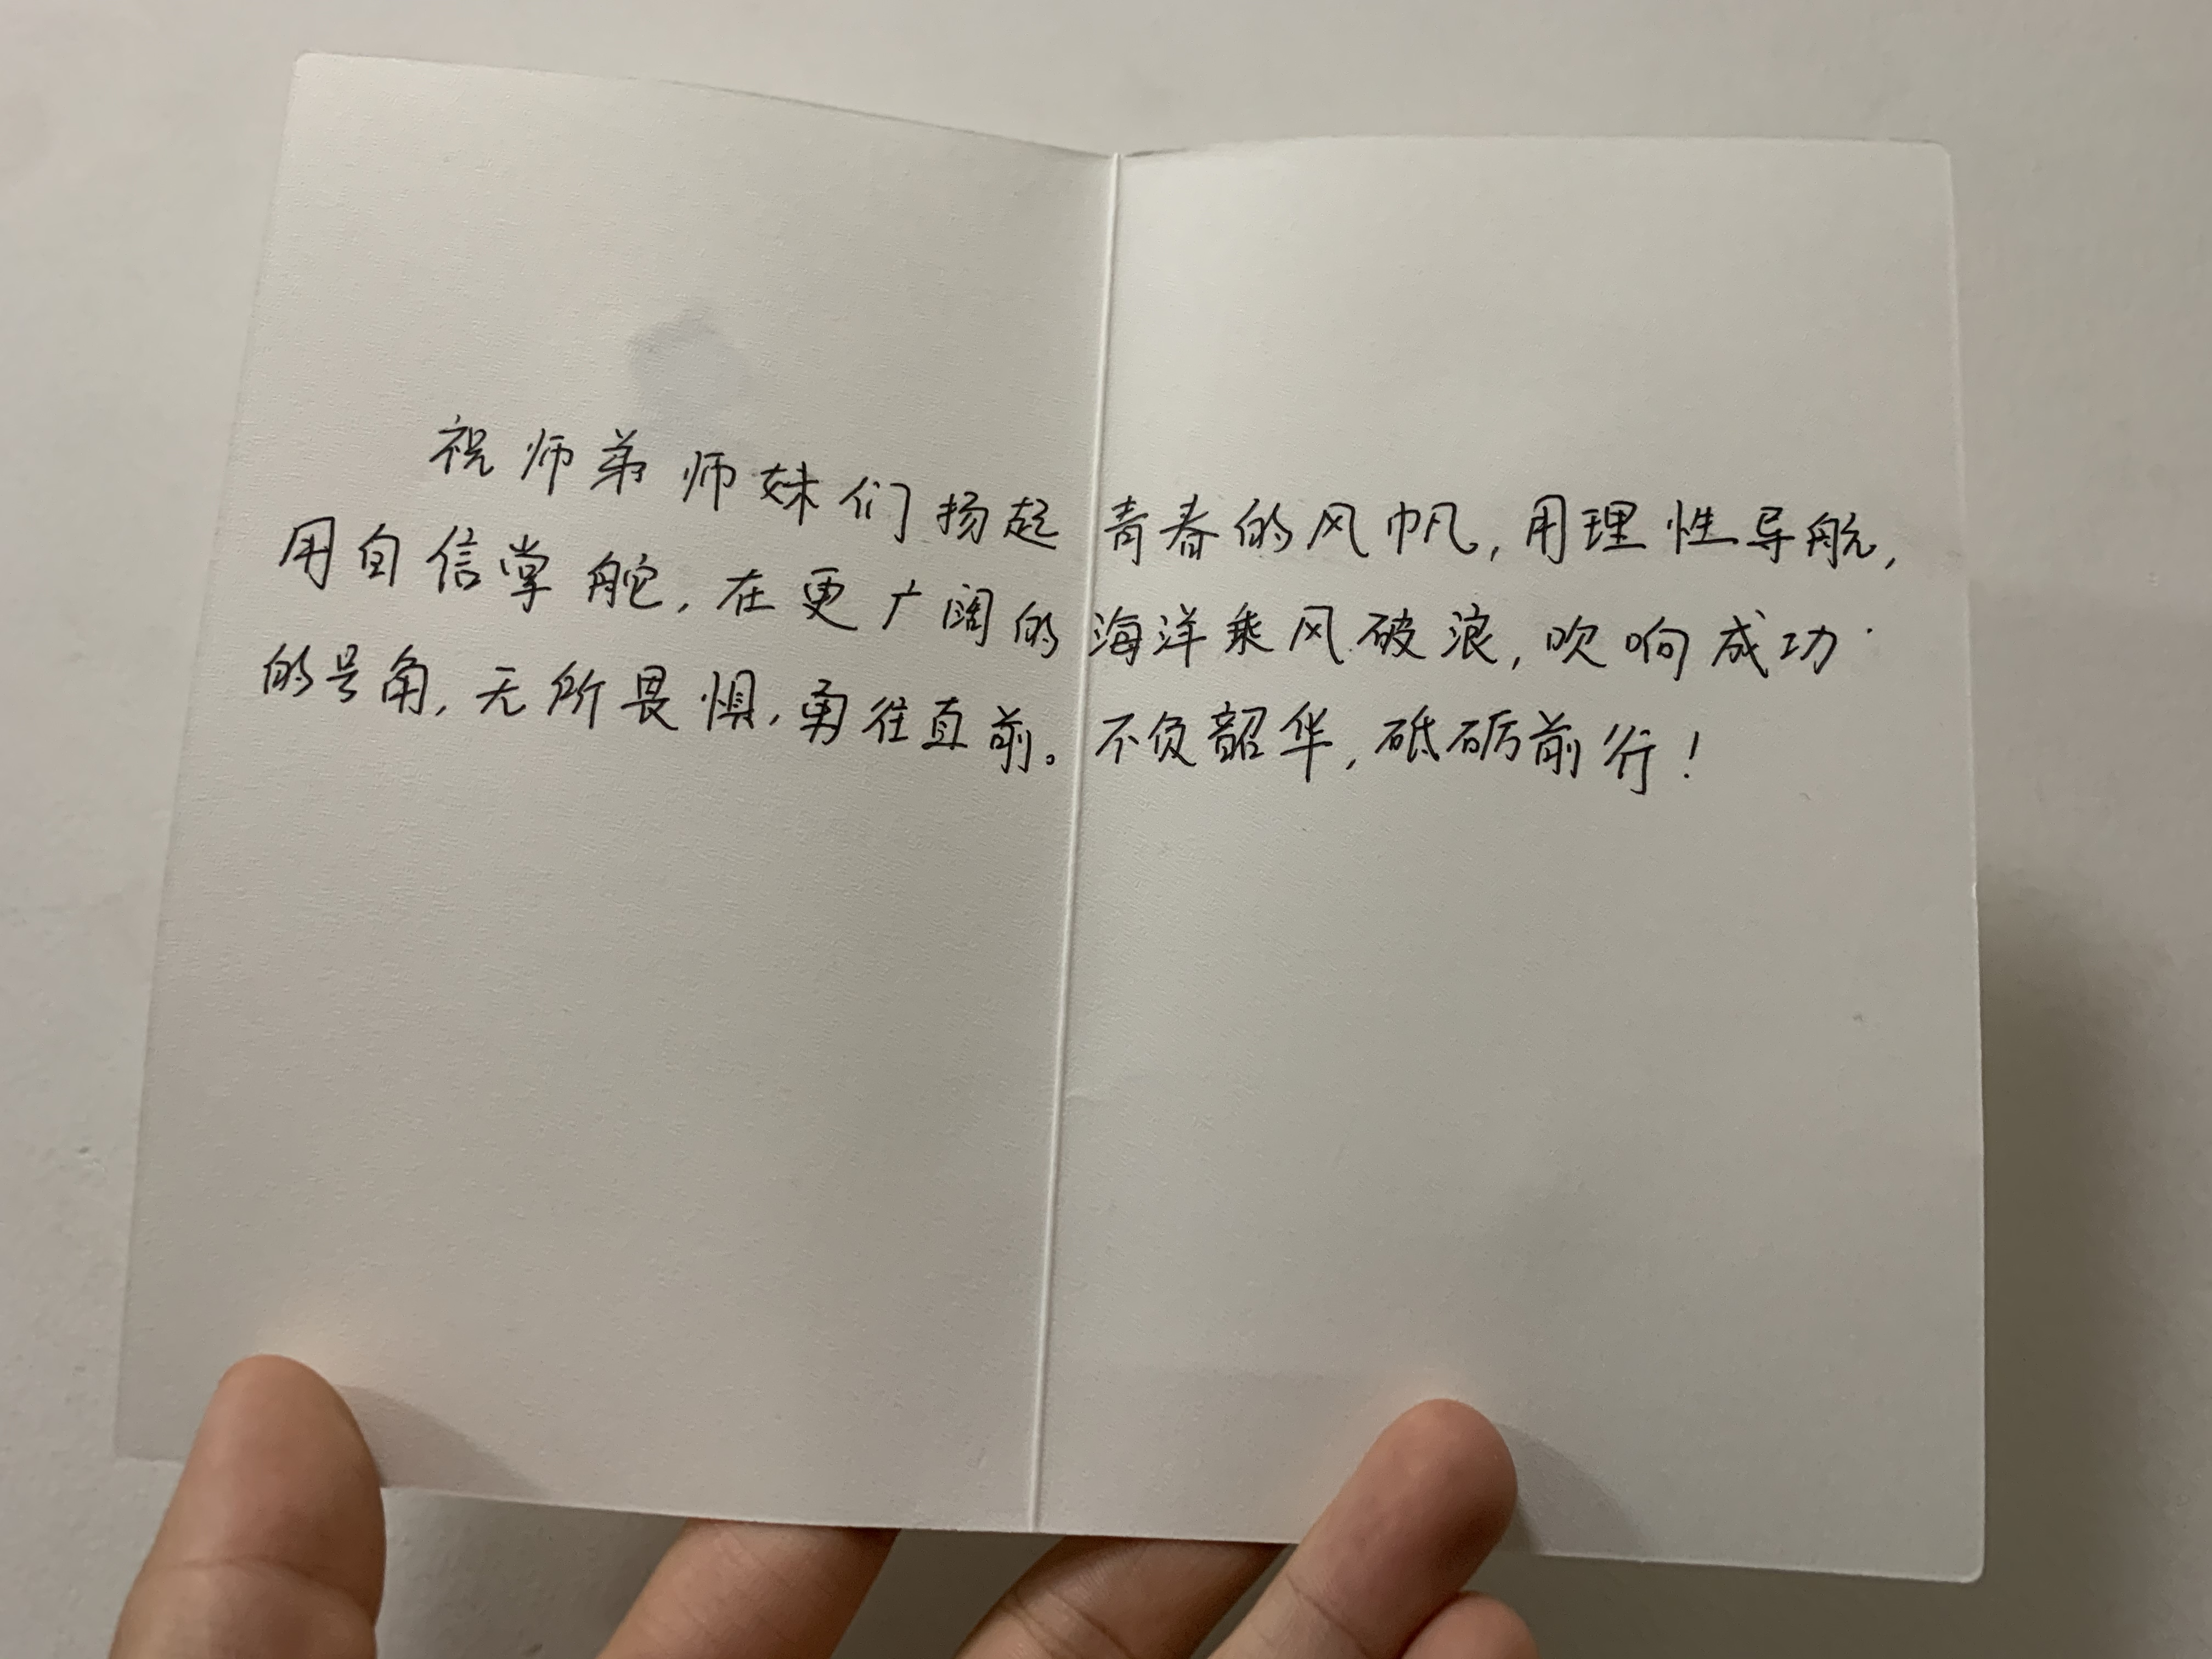 祝师弟师妹们扬起青春的风帆，用理性导航，
用自信掌舵，在更广阔的海洋乘风破浪，吹响成功
的号角，无所畏惧，勇往直前。不负韶华，砥砺前行！